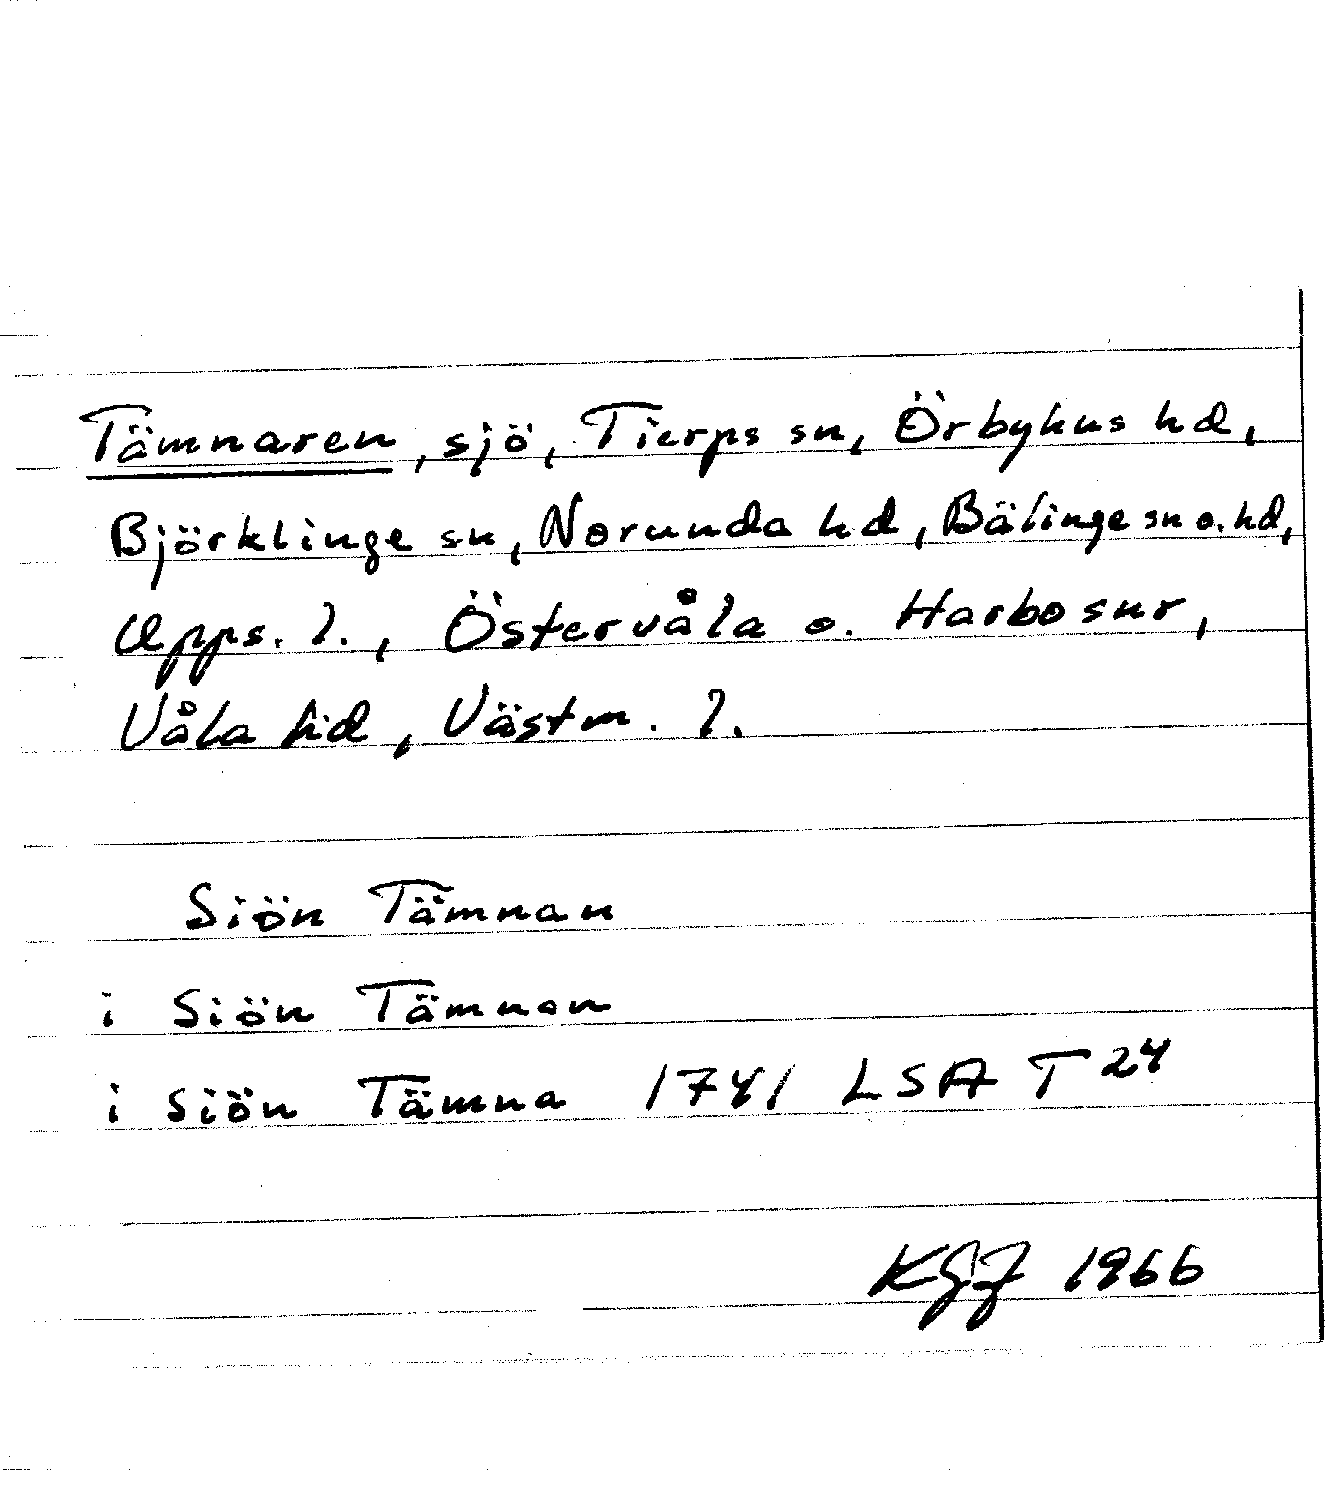 Tämnaren, sjö, Tierps sn, Örbyhus hd,
Björklinge sn, Norunda hd, Bälinge sn o. hd,
Upps. l., Östervåla o. Harbo snr,
Våla hd, Västm. l.
Siön Tämnan
i Siön Tämnan
i siön Tämna 1741 LSA T24
KGJ 1966